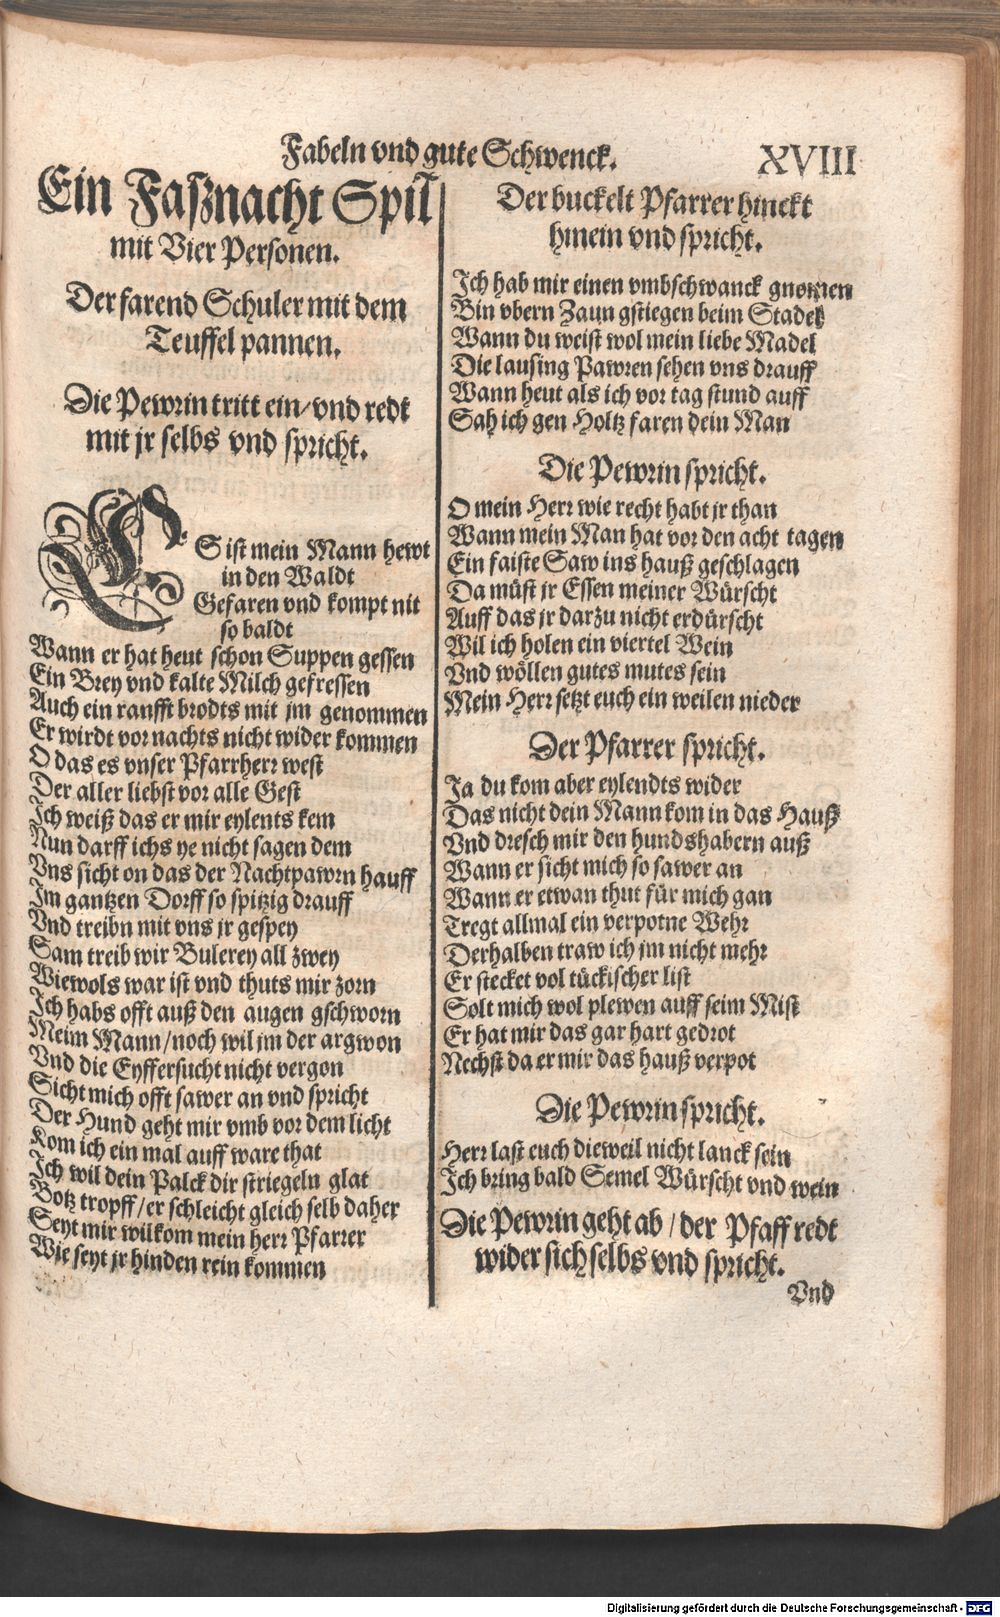 Fabeln vnd gute Schwenck. XVIII
Ein Faßnacht Spil
mit Vier Personen.
Der farend Schuler mit dem
Teuffel pannen.
Die Pewrin tritt ein/vnd redt
mit jr selbs vnd spricht.
ES ist mein Mann hewt
in den Waldt
Gefaren vnd kompt nit
so baldt
Wann er hat heut schon Suppen gessen
Ein Brey vnd kalte Milch gefressen
Auch ein ranfft brodts mit jm genommen
Er wirdt vor nachts nicht wider kommen
O das es vnser Pfarrherr west
Der aller liebst vor alle Gest
Ich weiß das er mir eylents kem
Nun darff ichs ye nicht sagen dem
Vns sicht on das der Nachtpawrn hauff
Im gantzen Dorff so spitzig drauff
Vnd treibn mit vns jr gespey
Sam treib wir Bulerey all zwey
Wiewols war ist vnd thuts mir zorn
Ich habs offt auß den augen gschworn
Meim Mann/noch wil jm der argwon
Vnd die Eyffersucht nicht vergon
Sicht mich offt sawer an vnd spricht
Der Hund geht mir vmb vor dem licht
Kom ich ein mal auff ware that
Ich wil dein Palck dir striegeln glat
Botz tropff/er schleicht gleich selb daher
Seyt mir wilkom mein herr Pfarrer
Wie seyt jr hinden rein kommen
Der buckelt Pfarrer hinckt
hinein vnd spricht.
Ich hab mir einen vmbschwanck gnomen
Bin vbern Zaun gstiegen beim Stadel
Wann du weist wol mein liebe Madel
Die lausing Pawren sehen vns drauff
Wann heut als ich vor tag stund auff
Sah ich gen Holtz faren dein Man
Die Pewrin spricht.
O mein Herr wie recht habt jr than
Wann mein Man hat vor den acht tagen
Ein faiste Saw ins hauß geschlagen
Da müst jr Essen meiner Würscht
Auff das jr darzu nicht erdürscht
Wil ich holen ein viertel Wein
Vnd wöllen gutes mutes sein
Mein Herr setzt euch ein weilen nieder
Der Pfarrer spricht.
Ja du kom aber eylendts wider
Das nicht dein Mann kom in das Hauß
Vnd dresch mir den hundshabern auß
Wann er sicht mich so sawer an
Wann er etwan thut für mich gan
Tregt allmal ein verpotne Wehr
Derhalben traw ich jm nicht mehr
Er stecket vol tückischer list
Solt mich wol plewen auff seim Mist
Er hat mir das gar hart gedrot
Nechst da er mir das hauß verpot
Die Pewrin spricht.
Herr last euch dieweil nicht lanck sein
Ich bring bald Semel Würscht vnd wein
Die Pewrin geht ab/der Pfaff redt
wider sich selbs vnd spricht.
Vnd
Digitalisierung gefördert durch die Deutsche Forschungsgemeinschaft - DFG